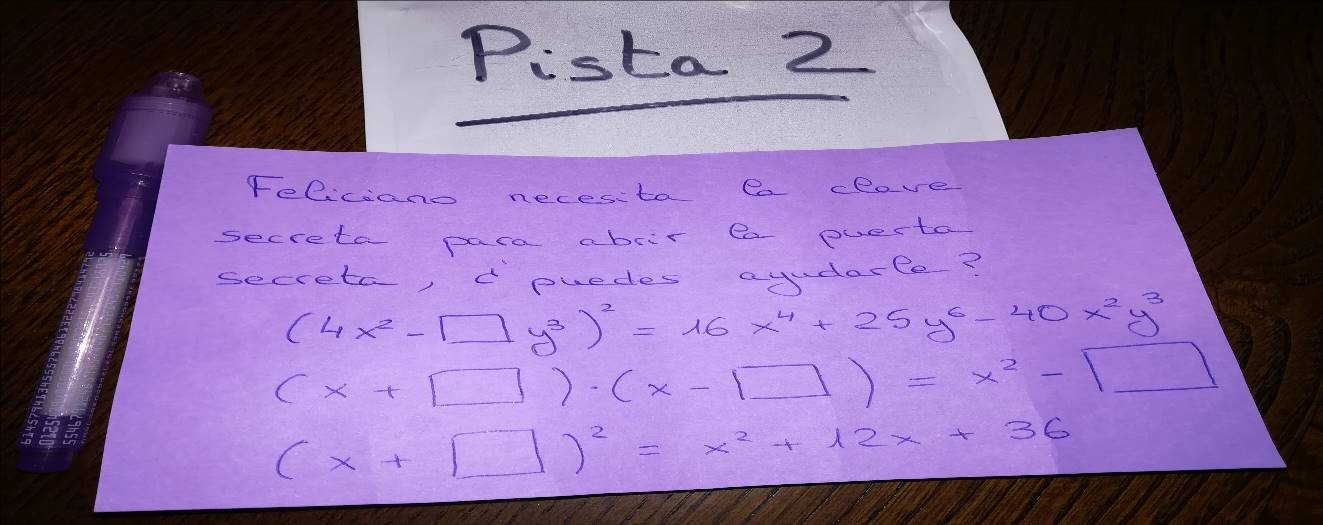 Pista 2
Feliciano necesita la clave
secreta para abrir la puerta
secreta, ¿puedes ayudarle?
(4x² - □ y³)² = 16x⁴ + 25y⁶ - 40x²y³
(x + □) · (x - □) = x² - □
(x + □)² = x² + 12x + 36